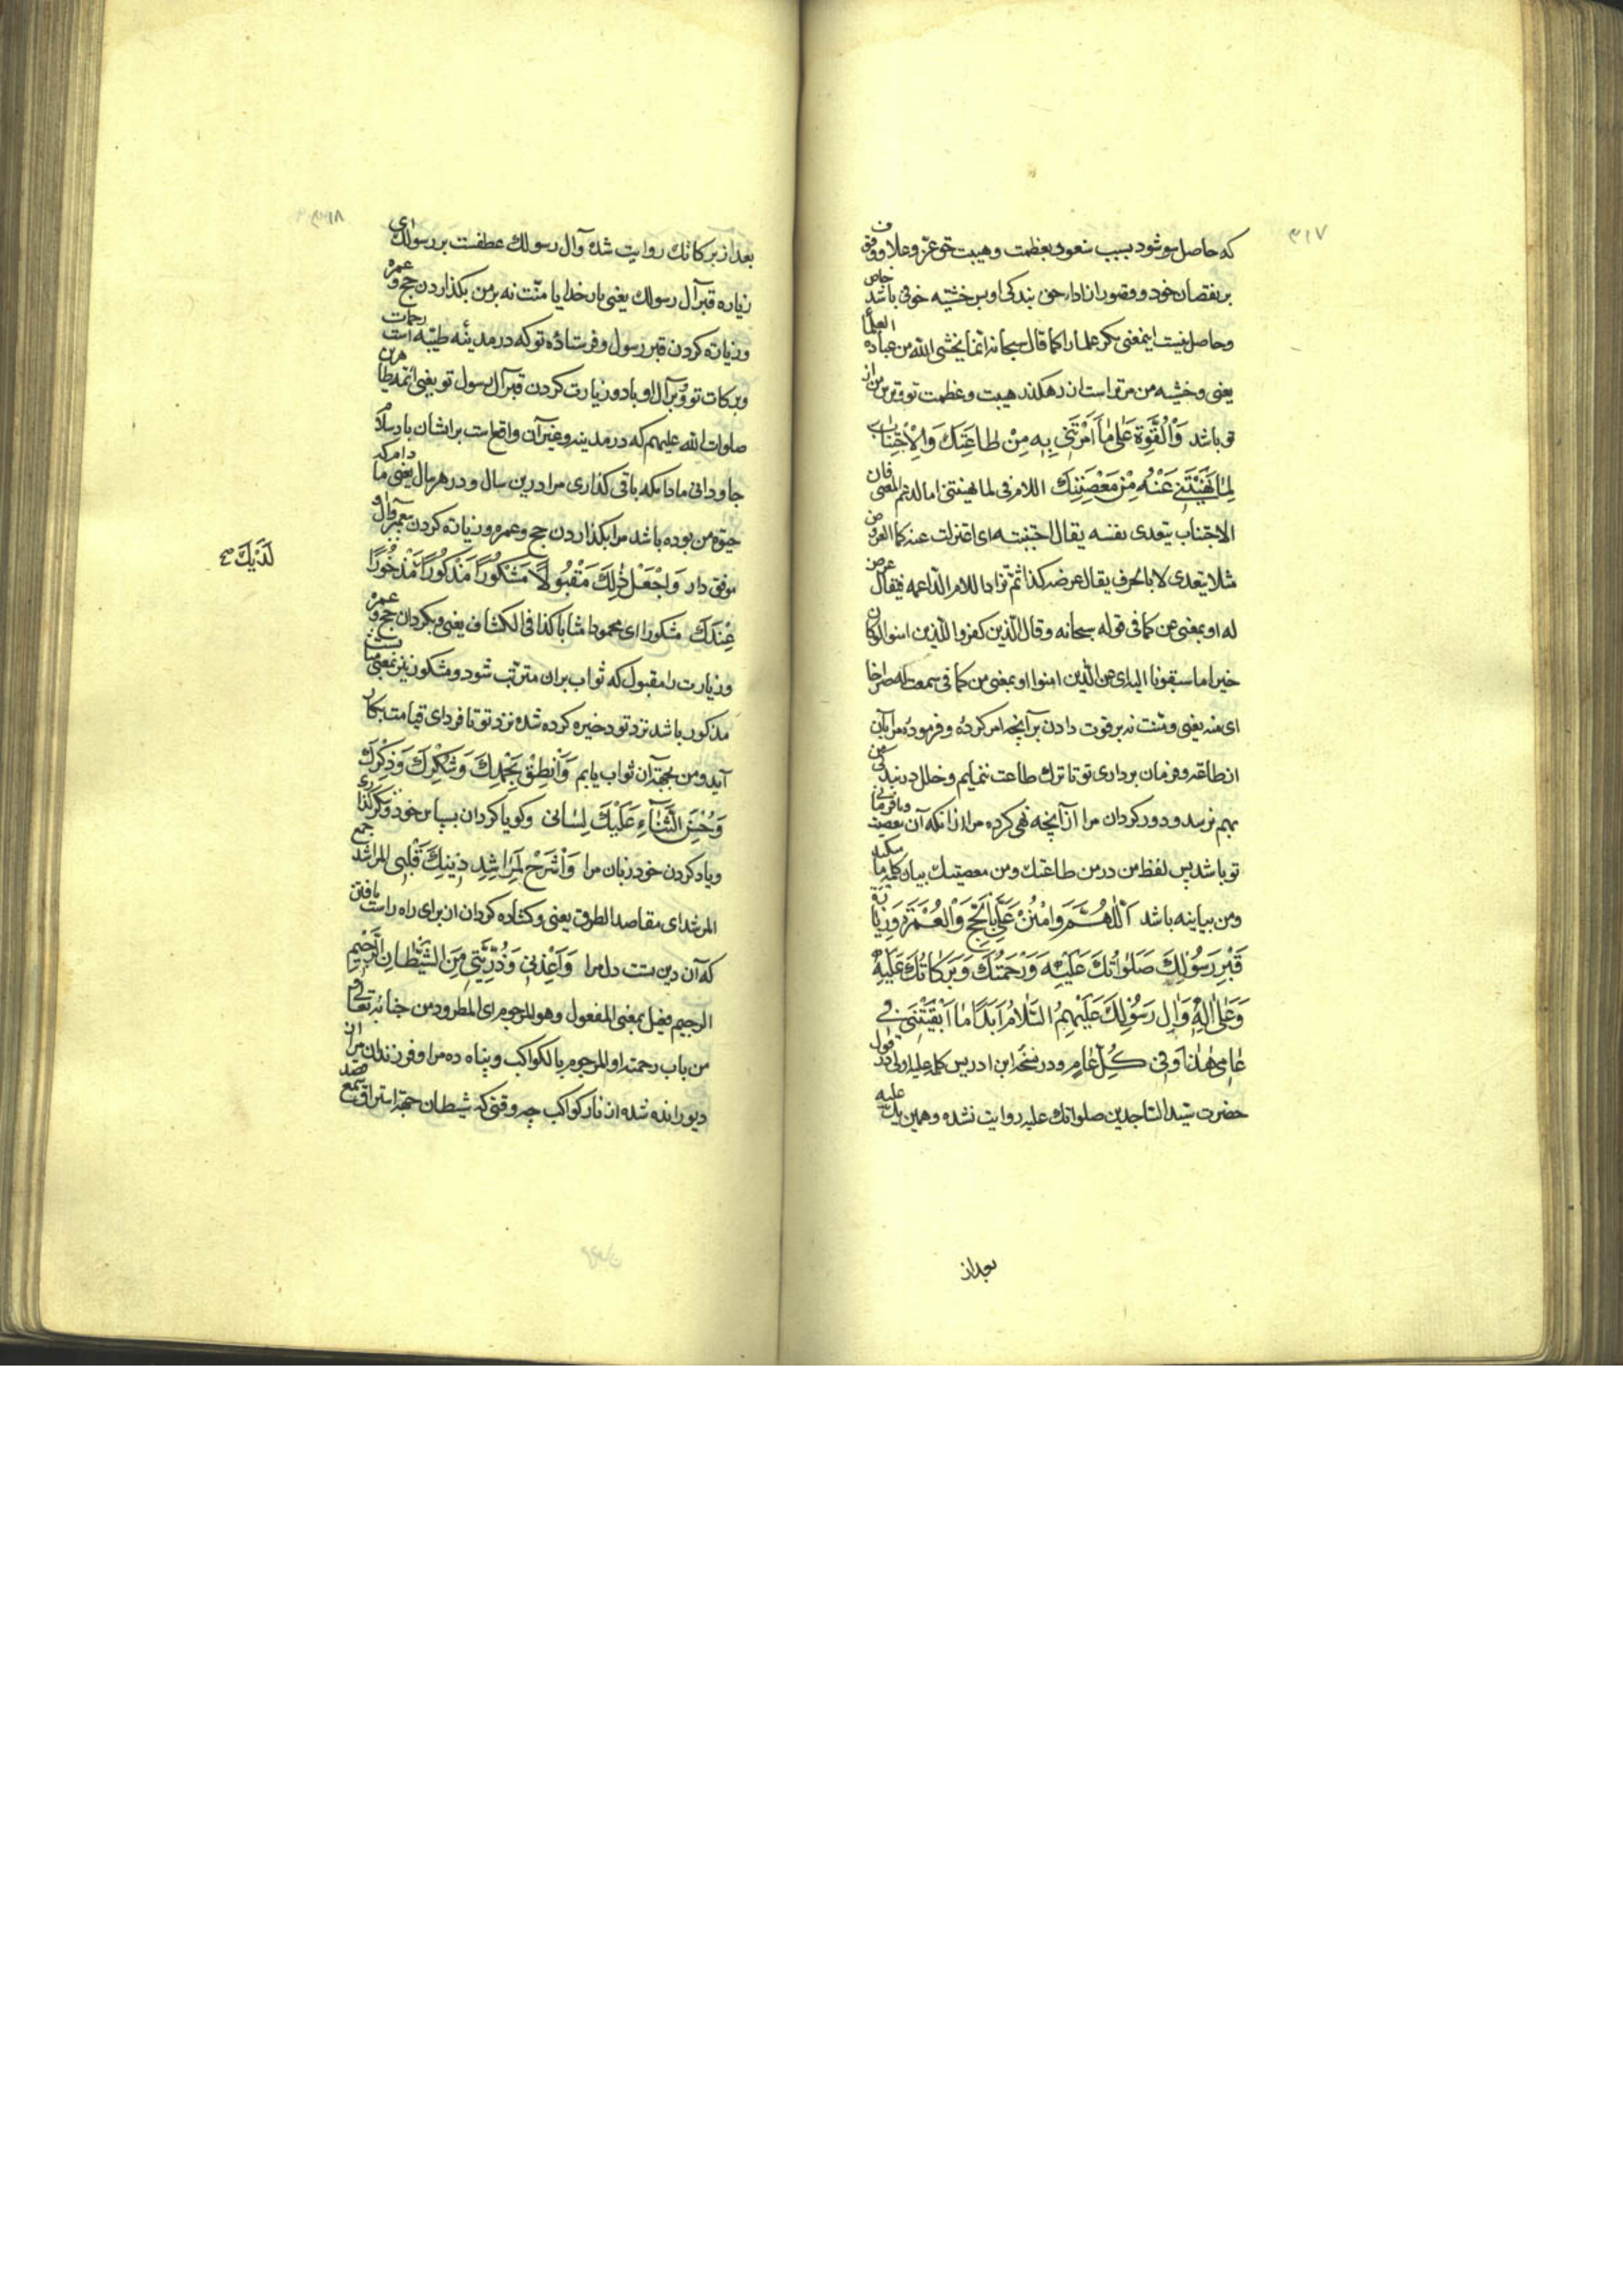 ٣١٧
که حاصل میشود بسبب شعور بعظمت و هیبت حق عزّ و علا و وقوف
بر نقصان خود و قصور از ادا حق بندکی او پس خشیه خوفی باشد خاص
و حاصل نیست اینمعنی مکر علما را کما قال سبحانه انما یخشی الله من عباده العلمآ
یعنی و خشیه من مر تو راست از رهکذر هیبت و عظمت تو و ترس من از
تو باشد وَالْقُوَّةَ عَلىٰ مٰا اَمَرْتَنى بِهِ مِنْ طٰاعَتِكَ وَالاِجْتِنٰابَ
لِمٰا نَهَيْتَنى عَنْهُ مِنْ مَعْصِيَتِكَ اللام فی لما نهیتنی اما لدعم المعنی فان
الاجتناب یتعدی بنفسه یقال اجتنبته ای اعتزلت عنه کما العرض
مثلا یتعدی لا بالحرف یقال عرضه کذا ثم تزاد اللام الداعمه فیقال عرض
له او بمعنی عن کما فی قوله سبحانه و قال الذین کفروا للذین امنوا لو کان
خیرا ما سبقونا الیه ای عن الذین امنوا او بمعنی من کما فی سمعت له صراخا
ای منه یعنی و منت نه بر قوت دادن بر آنچه امر کرده و فرموده مرا بآن
از طاعة و فرمان برداری تو تا ترک طاعت ننمایم و خلل در بندکی من
بهم نرسد و دور کردان مرا از آنچه نهی کرده مرا از انکه آن معصیت و نافرمانی
تو باشد پس لفظ من در من طاعتك و من معصیتك بیان کلمه ما میکند
و من بیانیه باشد اَللّٰهُمَّ وَامْنُنْ عَلَىَّ بِالْحَجِّ وَالْعُمْرَةِ وَزِيٰارَةِ
قَبْرِ رَسُولِكَ صَلَوٰاتُكَ عَلَيْهِ وَرَحْمَتُكَ وَبَرَكٰاتُكَ عَلَيْهِ
وَعَلىٰ اٰلِهِ وَاٰلِ رَسُولِكَ عَلَيْهِمُ السَّلٰامُ اَبَدًا مٰا اَبْقَيْتَنى فى
عٰامى هٰذٰا وَفى كُلِّ عٰامٍ و در نسخه ابن ادریس کلمه علیه اولی در قول
حضرت سید الساجدین صلواتك علیه روایت نشده و همین یك علیه
بعد از
بعد از برکاتك روایت شده و آل رسولك عطفست بر رسولك ای
زیاره قبر آل رسولك یعنی بار خدایا منّت نه بر من بکذاردن حج و عمره
و زیاره کردن قبر رسول و فرستاده تو که در مدینه طیبه است رحمات
و برکات تو و بر آل او باد و زیارت کردن قبر آل رسول تو یعنی ائمه طاهرین
صلوات الله علیهم که در مدینه و غیر آن واقع است بر ایشان باد سلام
جاودانی مادامکه باقی کذاری مرا درین سال و در هر سال یعنی مادامکه
حیوة من بوده باشد مرا بکذاردن حج و عمره و زیاره کردن پیغمبر و آل او
موفق دار وَاجْعَلْ ذٰلِكَ مَقْبُولًا مَشْكُورًا مَذْكُورًا مَذْخُورًا
لَدَيْكَ
عِنْدَكَ مشکورا ای محمودا مثابا کذا فی الکشاف یعنی و بکردان حج و عمره
و زیارت را مقبول که ثواب بر آن مترتب شود و مشکور نیز بمعنی
مذکور باشد نزد تو و ذخیره کرده شده نزد تو تا فردای قیامت بکار
آید و من بجهة آن ثواب یابم وَاَنْطِقْ بِحَمْدِكَ وَشُكْرِكَ وَذِكْرِكَ
وَحُسْنِ الثَّنٰآءِ عَلَيْكَ لِسٰانى و کویا کردان بسپاس خود و شکرکذاری
و یاد کردن خود زبان مرا وَاشْرَحْ لِمَرٰاشِدِ دينِكَ قَلْبى المراشد جمع
المرشد ای مقاصد الطرق یعنی و کشاده کردان از برای راه راست یافتن
که آن دین تست دل مرا وَاَعِذْنى وَذُرِّيَّتى مِنَ الشَّيْطٰانِ الرَّجيمِ
الرجیم فعیل بمعنی المفعول و هو المرجوم ای المطرود من جنابه تعالی او
من باب رحمته او المرجوم بالکواکب و پناه ده مرا و فرزندان مرا از
دیو رانده شده از نار کواکب چه وقتی که شیطان جهة استراق سمع